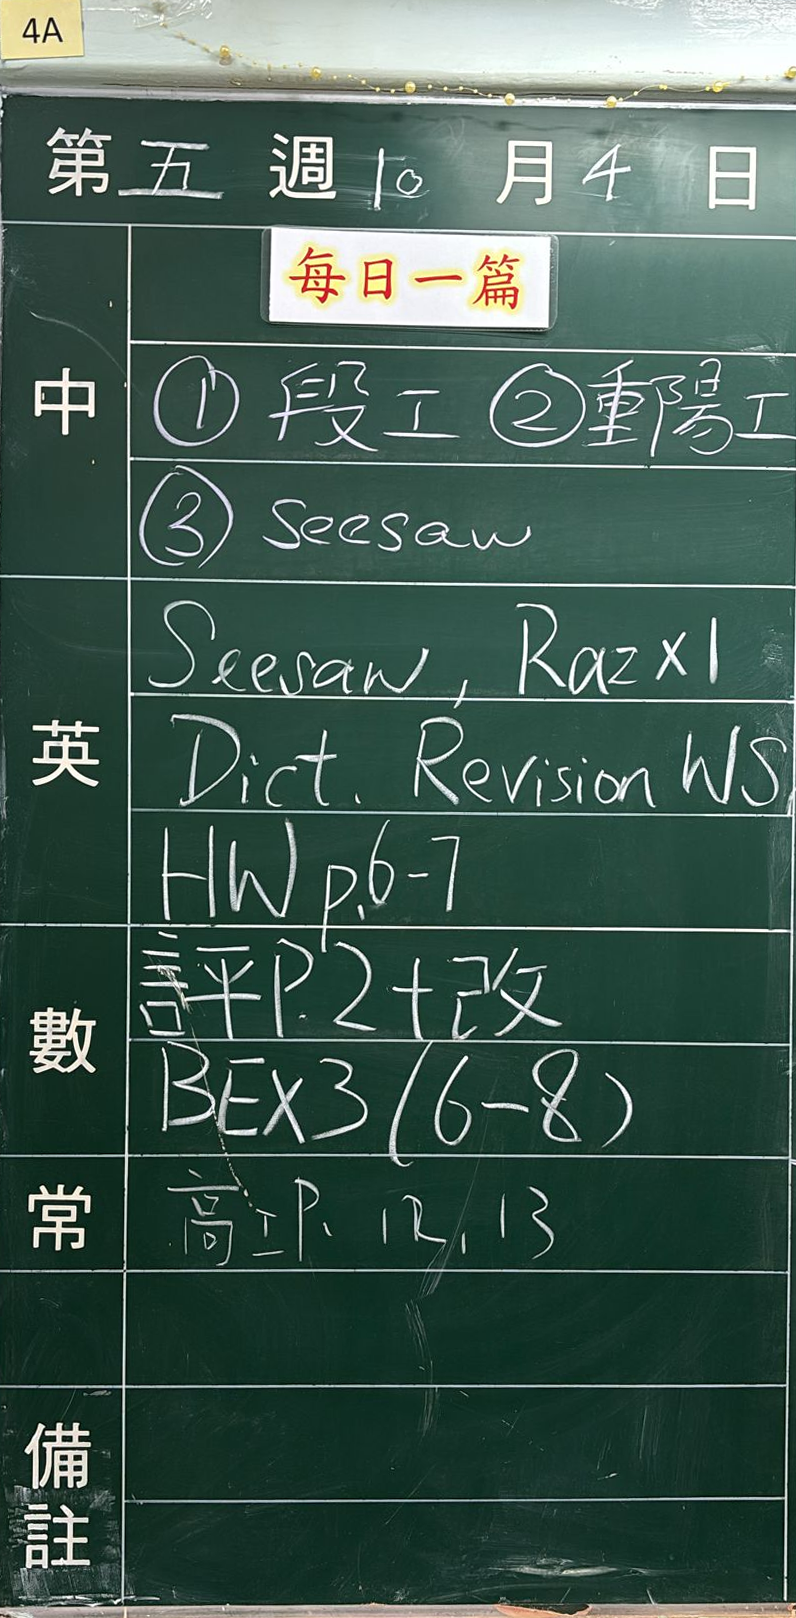 4A
第五週10月4日
每日一篇
中
①段工 ②重陽工
③ seesaw
英
Seesaw, Raz x1
Dict. Revision WS
HW p.6-7
數
評P.2+改
BEX3(6-8)
常
高工P. 12, 13
備註